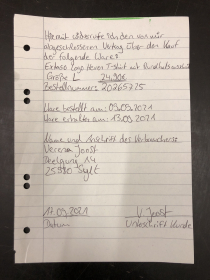 Hiermit widerrufe ich den von mir
abgeschlossenen Vertrag über den Kauf
der folgende Ware:
Extoso Logo Herren T-Shirt mit Rundhalsausschnitt
Größe L 24,90€
Bestellnummer: 20265725
Ware bestellt am: 09.09.2021
Ware erhalten am: 13.09.2021
Name und Anschrift des Verbrauchers:
Verena Joost
14
25980 Sylt
17.09.2021 V. Joost
Datum Unterschrift Kunde